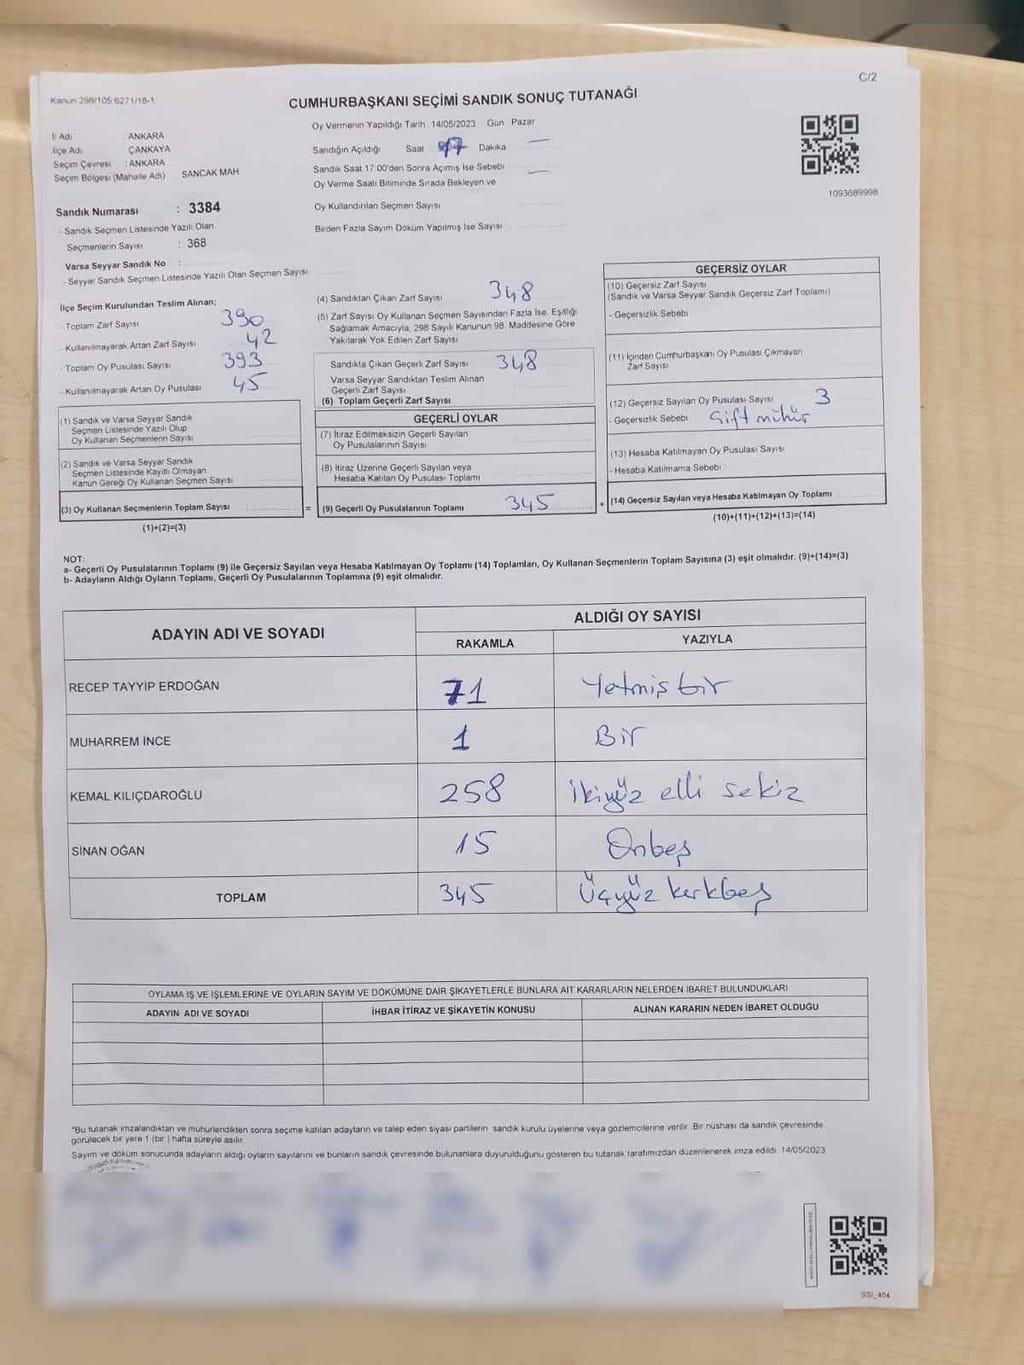 C/2
Kanun:298/105:6271/18-1
CUMHURBAŞKANI SEÇİMİ SANDIK SONUÇ TUTANAĞI
İl Adı ANKARA
İlçe Adı ÇANKAYA
Seçim Çevresi : ANKARA
Seçim Bölgesi (Mahalle Adı) SANCAK MAH
Oy Vermenin Yapıldığı Tarih 14/05/2023 Gün Pazar
Sandığın Açıldığı Saat 17 Dakika —
Sandık Saat 17:00'den Sonra Açılmış İse Sebebi —
Oy Verme Saati Bitiminde Sırada Bekleyen ve
Oy Kullandırılan Seçmen Sayısı
Birden Fazla Sayım Döküm Yapılmış İse Sayısı
1093689998
Sandık Numarası : 3384
- Sandık Seçmen Listesinde Yazılı Olan
Seçmenlerin Sayısı : 368
Varsa Seyyar Sandık No :
- Seyyar Sandık Seçmen Listesinde Yazılı Olan Seçmen Sayısı
İlçe Seçim Kurulundan Teslim Alınan;
- Toplam Zarf Sayısı 390
- Kullanılmayarak Artan Zarf Sayısı 42
- Toplam Oy Pusulası Sayısı 393
- Kullanılmayarak Artan Oy Pusulası 45
(1) Sandık ve Varsa Seyyar Sandık
Seçmen Listesinde Yazılı Olup
Oy Kullanan Seçmenlerin Sayısı
(2) Sandık ve Varsa Seyyar Sandık
Seçmen Listesinde Kayıtlı Olmayan
Kanun Gereği Oy Kullanan Seçmen Sayısı
(3) Oy Kullanan Seçmenlerin Toplam Sayısı =
(1)+(2)=(3)
(4) Sandıktan Çıkan Zarf Sayısı 348
(5) Zarf Sayısı Oy Kullanan Seçmen Sayısından Fazla İse, Eşitliği
Sağlamak Amacıyla, 298 Sayılı Kanunun 98. Maddesine Göre
Yakılarak Yok Edilen Zarf Sayısı
Sandıkta Çıkan Geçerli Zarf Sayısı 348
Varsa Seyyar Sandıktan Teslim Alınan
Geçerli Zarf Sayısı
(6) Toplam Geçerli Zarf Sayısı
GEÇERLİ OYLAR
(7) İtiraz Edilmeksizin Geçerli Sayılan
Oy Pusulalarının Sayısı
(8) İtiraz Üzerine Geçerli Sayılan veya
Hesaba Katılan Oy Pusulası Toplamı
(9) Geçerli Oy Pusulalarının Toplamı 345 +
GEÇERSİZ OYLAR
(10) Geçersiz Zarf Sayısı
(Sandık ve Varsa Seyyar Sandık Geçersiz Zarf Toplamı)
- Geçersizlik Sebebi
(11) İçinden Cumhurbaşkanı Oy Pusulası Çıkmayan
Zarf Sayısı
(12) Geçersiz Sayılan Oy Pusulası Sayısı 3
- Geçersizlik Sebebi Çift mühür
(13) Hesaba Katılmayan Oy Pusulası Sayısı
- Hesaba Katılmama Sebebi
(14) Geçersiz Sayılan veya Hesaba Katılmayan Oy Toplamı
(10)+(11)+(12)+(13)=(14)
NOT:
a- Geçerli Oy Pusulalarının Toplamı (9) ile Geçersiz Sayılan veya Hesaba Katılmayan Oy Toplamı (14) Toplamları, Oy Kullanan Seçmenlerin Toplam Sayısına (3) eşit olmalıdır. (9)+(14)=(3)
b- Adayların Aldığı Oyların Toplamı, Geçerli Oy Pusulalarının Toplamına (9) eşit olmalıdır.
ADAYIN ADI VE SOYADI ALDIĞI OY SAYISI
RAKAMLA YAZIYLA
RECEP TAYYİP ERDOĞAN 71 Yetmişbir
MUHARREM İNCE 1 Bir
KEMAL KILIÇDAROĞLU 258 İkiyüz elli sekiz
SİNAN OĞAN 15 Onbeş
TOPLAM 345 Üçyüz kırkbeş
OYLAMA İŞ VE İŞLEMLERİNE VE OYLARIN SAYIM VE DÖKÜMÜNE DAİR ŞİKAYETLERLE BUNLARA AİT KARARLARIN NELERDEN İBARET BULUNDUKLARI
ADAYIN ADI VE SOYADI İHBAR İTİRAZ VE ŞİKAYETİN KONUSU ALINAN KARARIN NEDEN İBARET OLDUĞU
*Bu tutanak imzalandıktan ve mühürlendikten sonra seçime katılan adayların ve talep eden siyasi partilerin sandık kurulu üyelerine veya gözlemcilerine verilir. Bir nüshası da sandık çevresinde
görülecek bir yere 1 (bir ) hafta süreyle asılır.
Sayım ve döküm sonucunda adayların aldığı oyların sayılarını ve bunların sandık çevresinde bulunanlara duyurulduğunu gösteren bu tutanak tarafımızdan düzenlenerek imza edildi. 14/05/2023
SSI_404